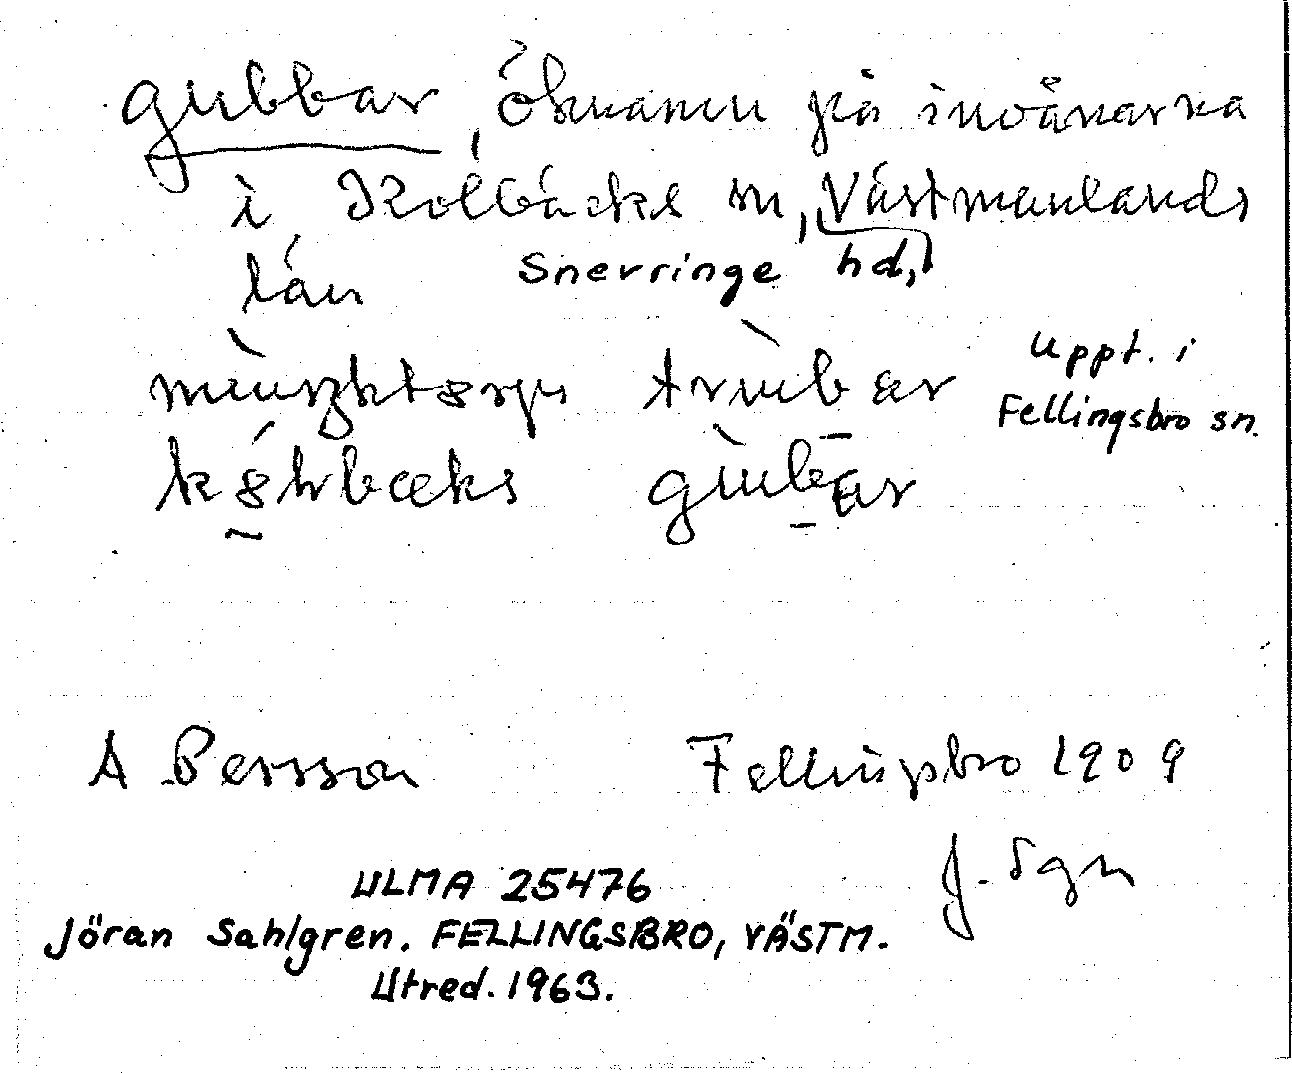 gubbar, öknamn på invånarna
i Kolbäcks sn, Västmanlands
län Snevringe hd,
Uppt. i
Fellingsbro sn.
trub ar
gubar
A Persson Fellingsbro 1909
J. Sgn
ULMA 25476
Jöran Sahlgren. FELLINGSBRO, VÄSTM.
Utred. 1963.